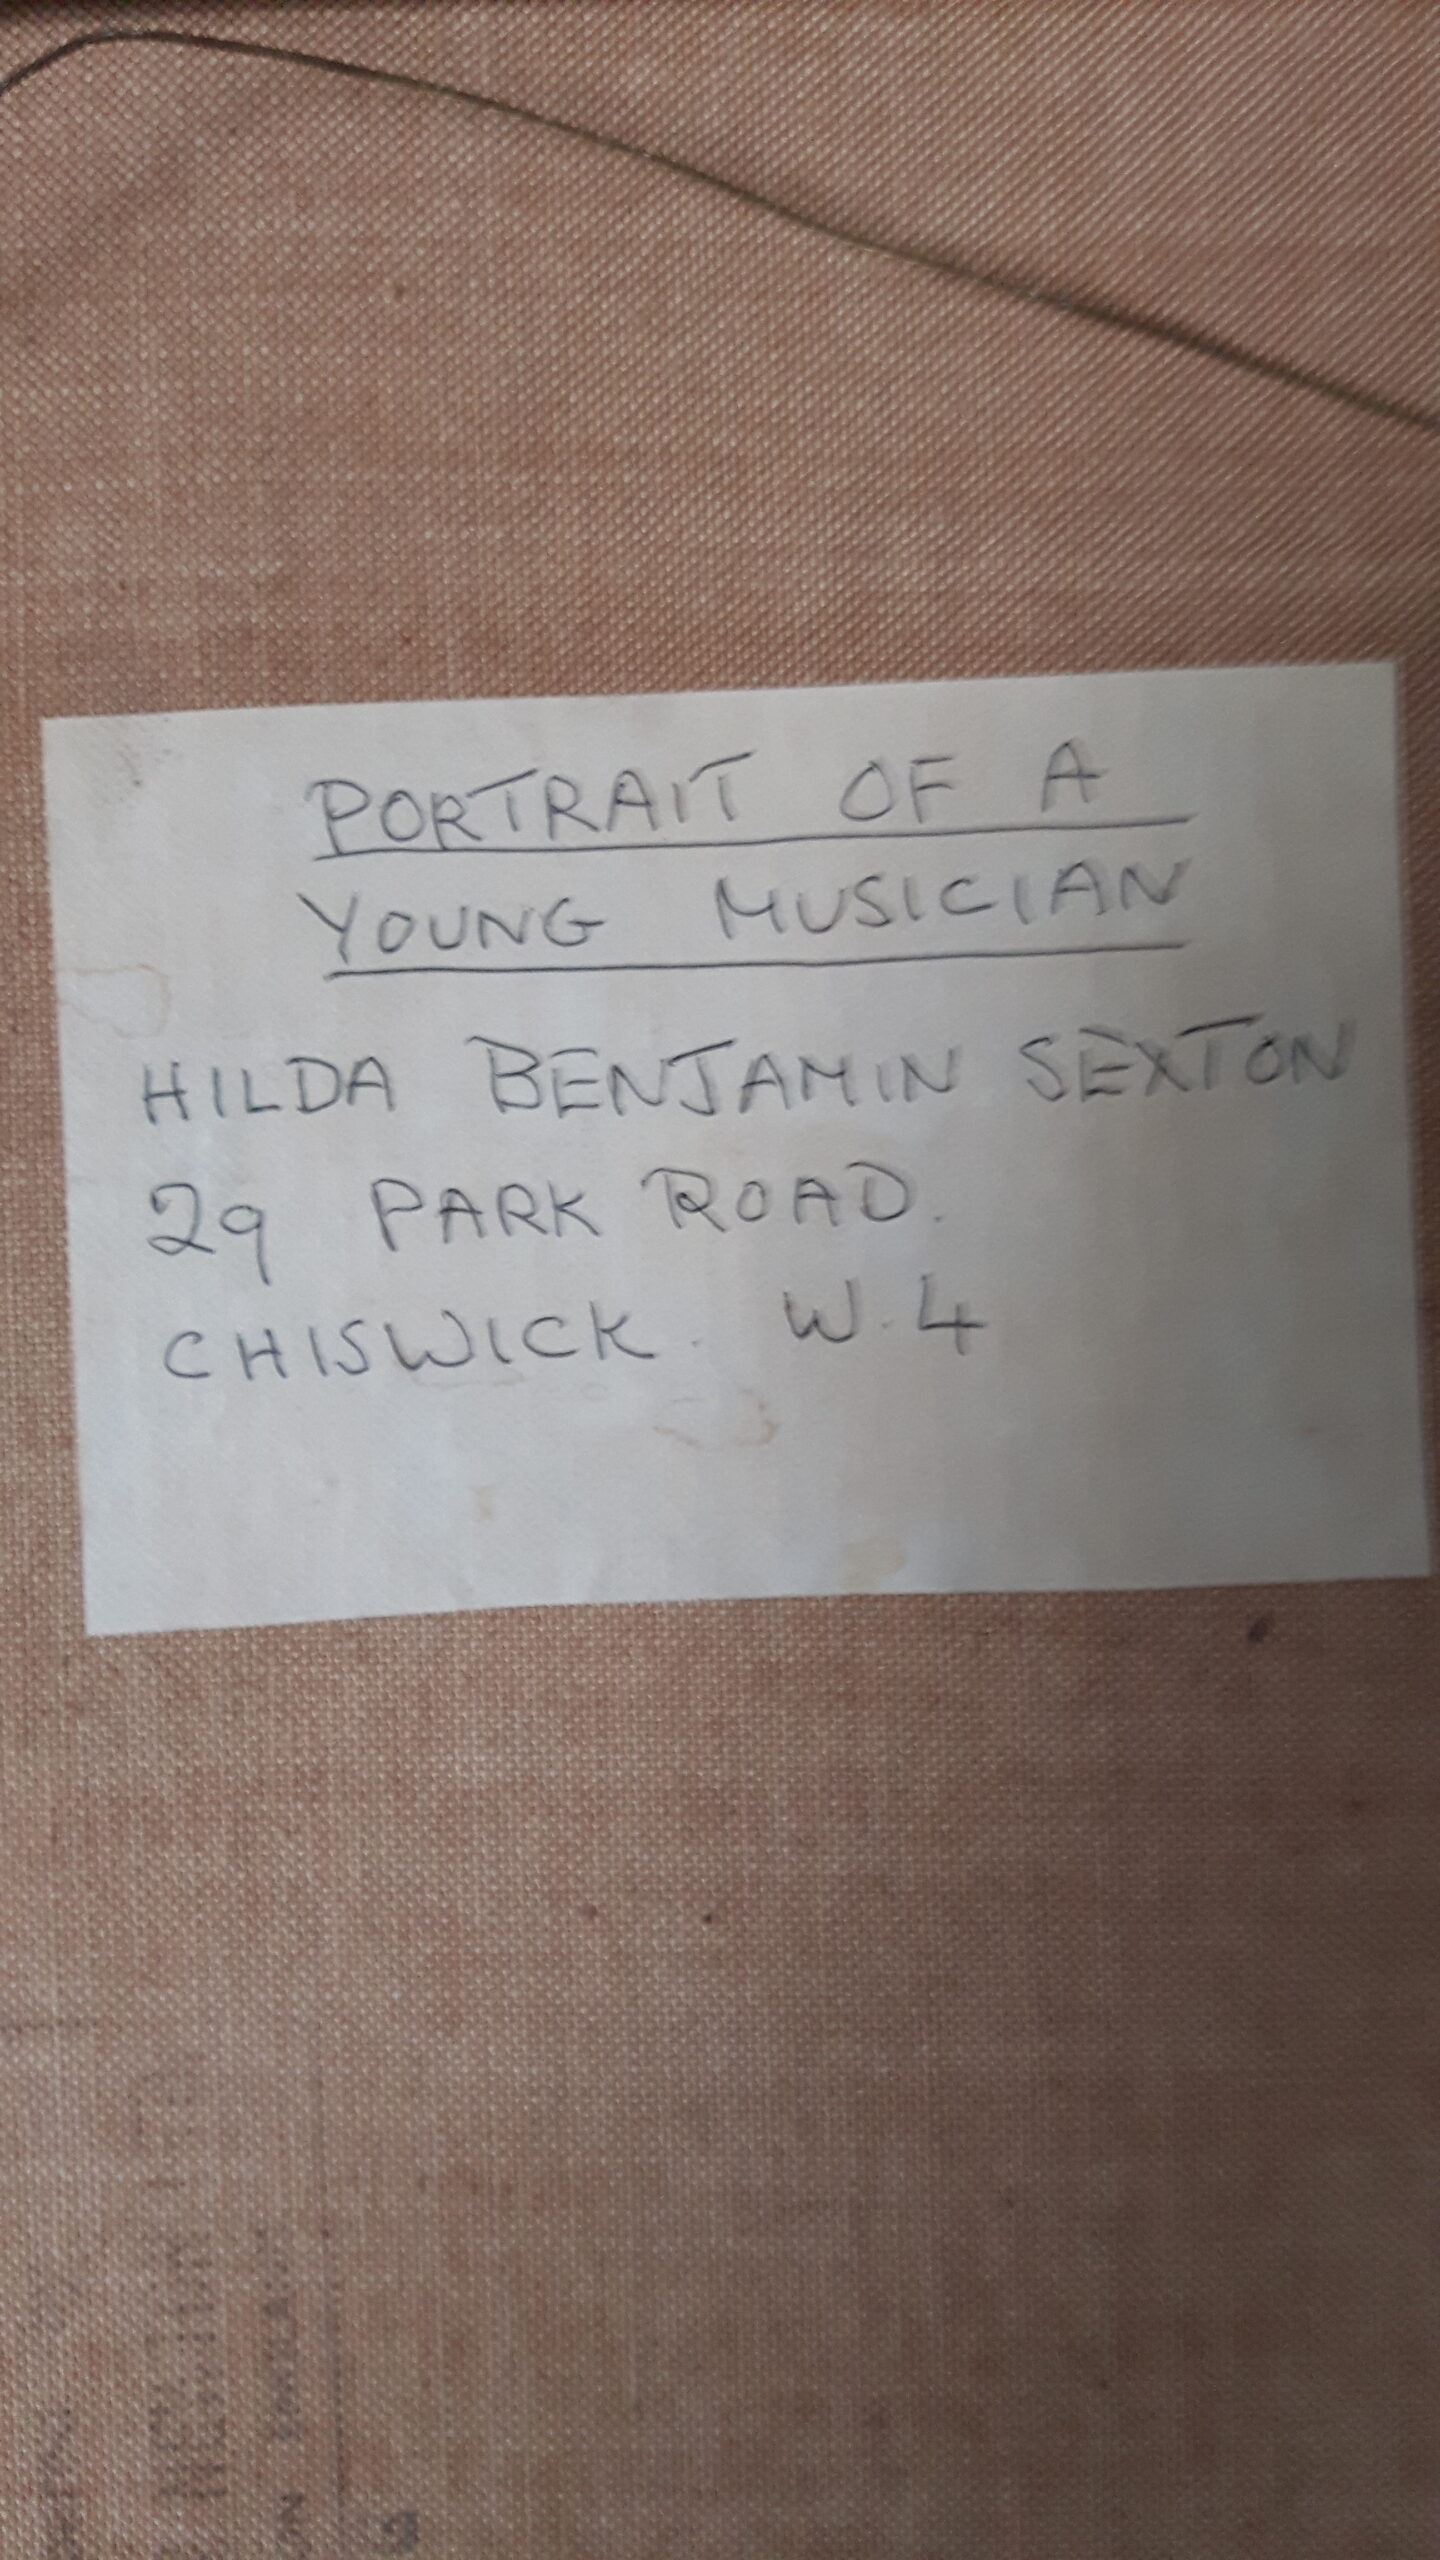 PORTRAIT OF A
YOUNG MUSICIAN
HILDA BENJAMIN SEXTON
29 PARK ROAD.
CHISWICK. W.4